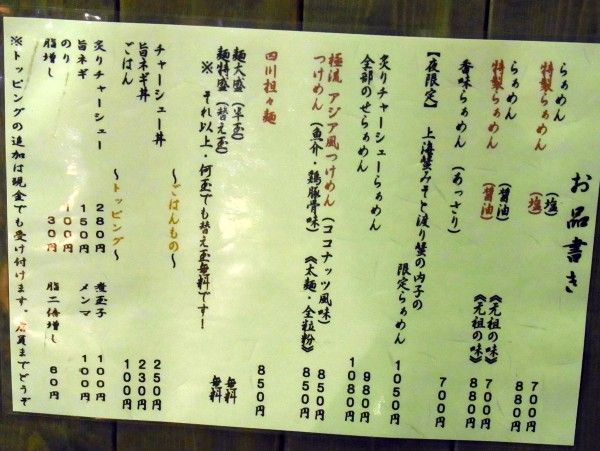 お品書き
らぁめん (塩) 700円
特製らぁめん (塩) 880円
らぁめん (醤油) 《元祖の味》 700円
特製らぁめん (醤油) 《元祖の味》 880円
香味らぁめん (あっさり) 700円
【夜限定】 上海蟹みそと渡り蟹の内子の
限定らぁめん 1050円
全部のせらぁめん 980円
炙りチャーシューらぁめん 1080円
極流 アジア風つけめん (ココナッツ風味) 850円
つけめん (魚介・鶏豚骨味) 《太麺・全粒粉》 850円
四川担々麺 850円
麺大盛 (半玉) 無料
麺特盛 (替え玉) 無料
※ それ以上・何玉でも替え玉無料です!
～ごはんもの～
チャーシュー丼 250円
旨ネギ丼 230円
ごはん 100円
～トッピング～
炙りチャーシュー 280円 煮玉子 100円
旨ネギ 150円 メンマ 100円
のり 100円
脂増し 30円 脂二倍増し 60円
※トッピングの追加は現金でも受け付けます。店員までどうぞ